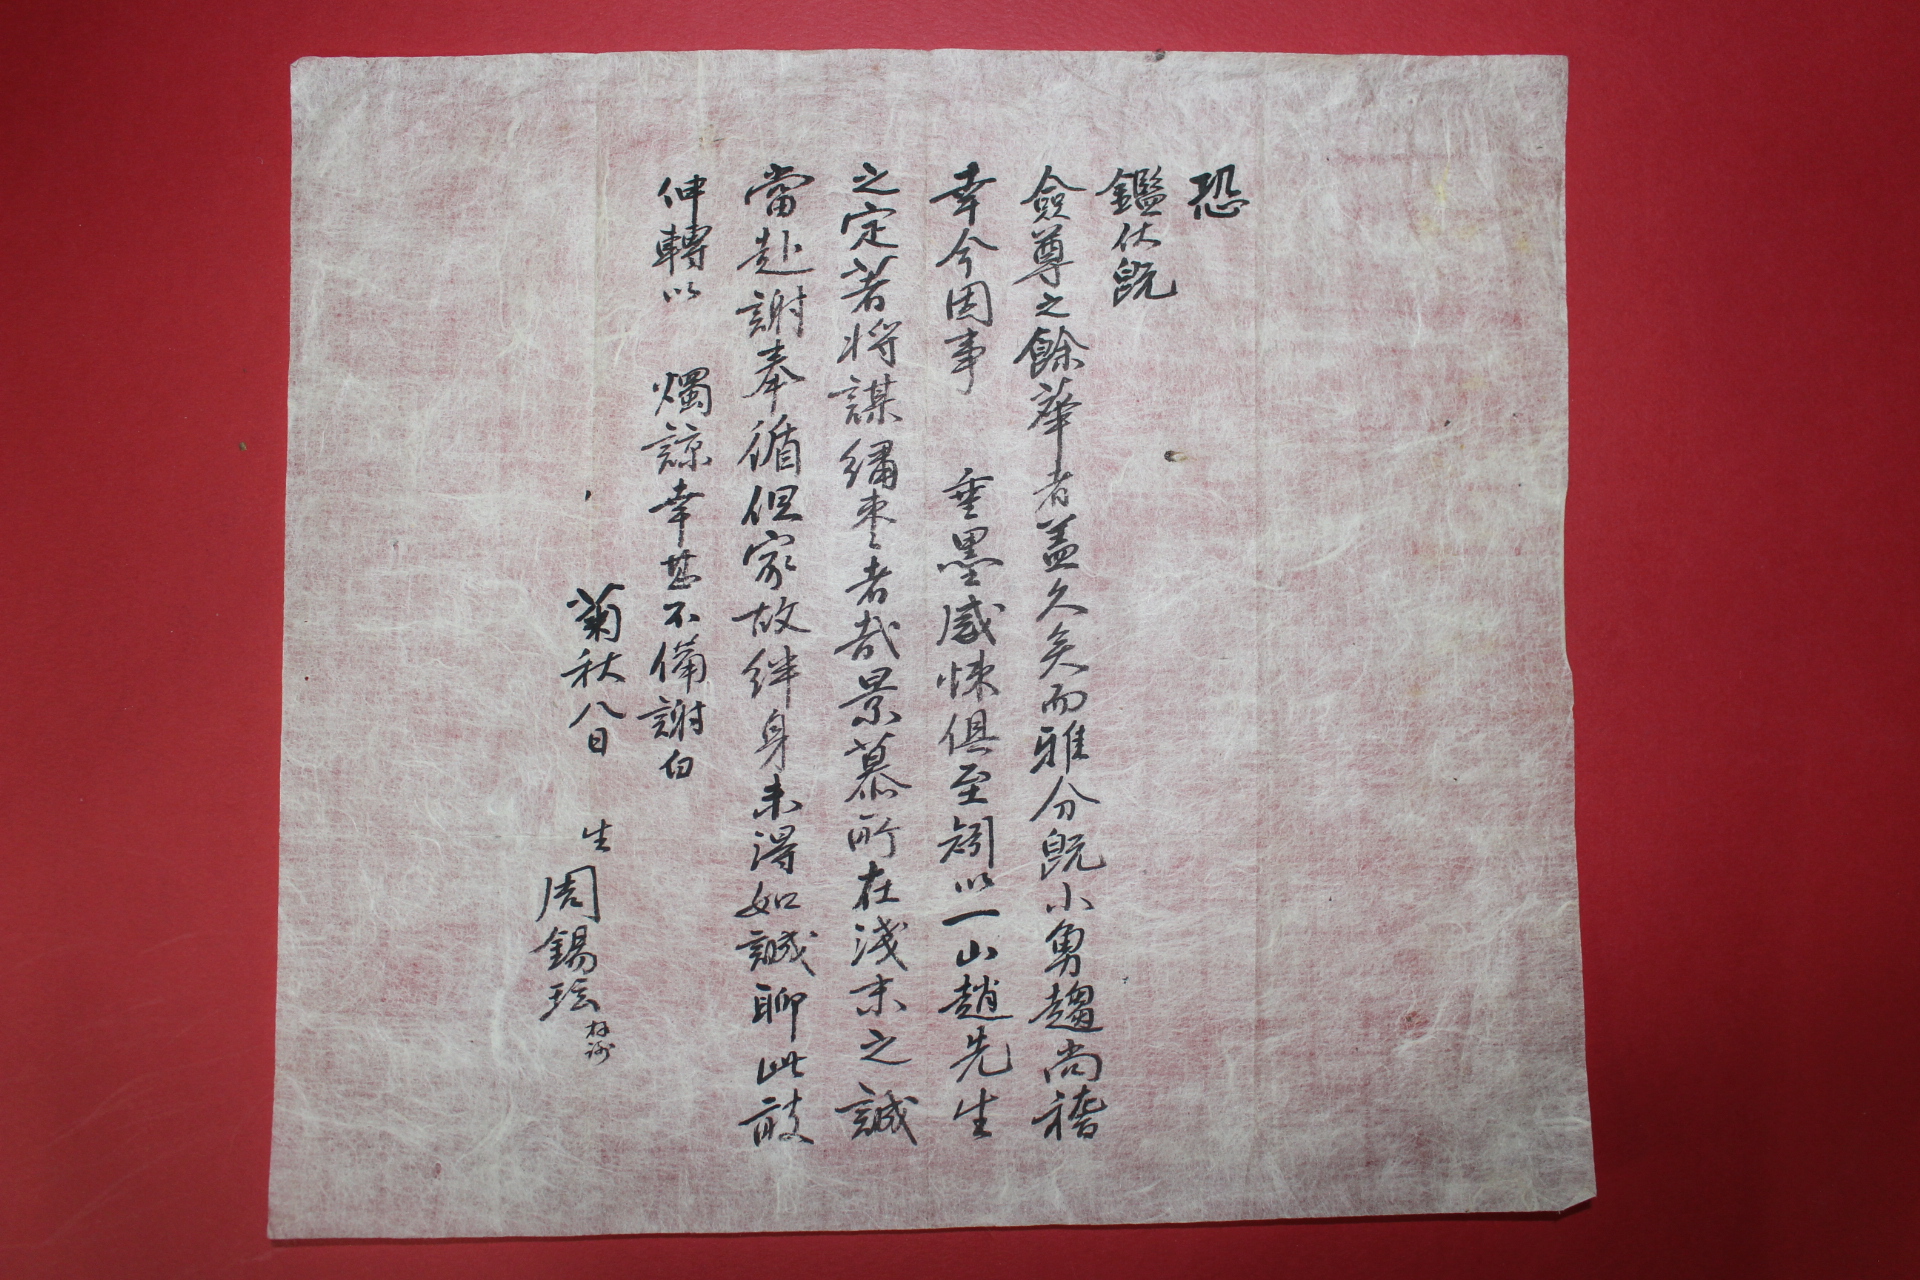 恐
鑑伏旣
僉尊之餘華者盖久矣而雅分旣小勇趨尚稽
幸今因事 垂墨感悚俱至矧以一山趙先生
之定著將謀繡棗者哉景慕所在淺末之誠
當赴謝奉循但家故絆身未得如誠聊此敢
伸轉以 燭諒幸甚不備謝白
菊秋八日 生
周錫